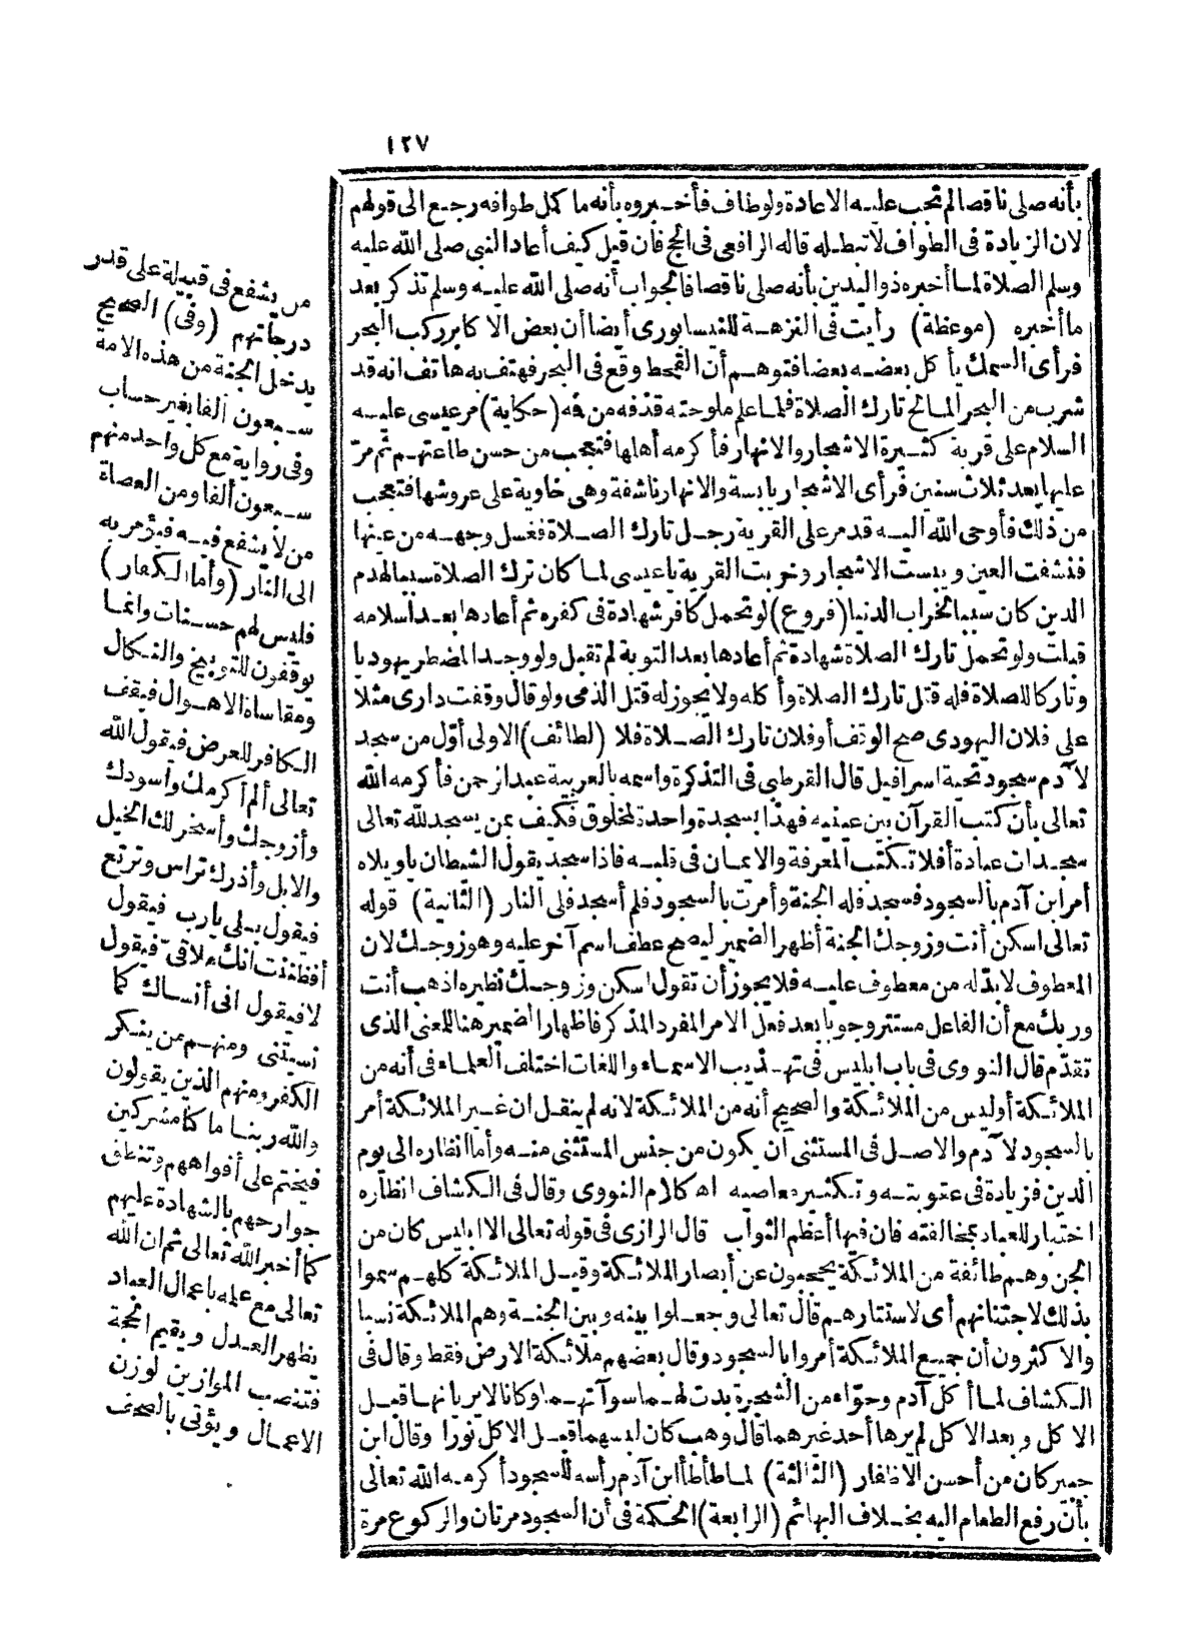 ١٢٧
بأنه صلى ناقصا لم تجب عليه الاعادة ولو طاف فأخبروه بأنه ما كمل طوافه رجع الى قولهم
لان الزيادة فى الطواف لا تبطله قاله الرافعى فى الحج فان قيل كيف أعاد النبى صلى الله عليه
وسلم الصلاة لما أخبره ذو اليدين بأنه صلى ناقصا فالجواب أنه صلى الله عليه وسلم تذكر بعد
ما أخبره (موعظة) رأيت فى النزهة للنيسابورى أيضا أن بعض الاكابر ركب البحر
فرأى السمك يأكل بعضه بعضا فتوهم أن القحط وقع فى البحر فهتف به هاتف انه قد
شرب من البحر المالح تارك الصلاة فلما علم ملوحته قذفه من فه (حكاية) مر عيسى عليه
السلام على قرية كثيرة الاشجار والانهار فأكرمه أهلها فتعجب من حسن طاعتهم ثم مرّ
عليها بعد ثلاث سنين فرأى الاشجار يابسة والانهار ناشفة وهى خاوية على عروشها فتعجب
من ذلك فأوحى الله اليه قد مر على القرية رجل تارك الصلاة فغسل وجهه من عينها
فنشفت العين ويبست الاشجار وخربت القرية ياعيسى لما كان ترك الصلاة سببا لهدم
الدين كان سببا لخراب الدنيا (فروع) لو تحمل كافر شهادة فى كفره ثم أعادها بعد اسلامه
قبلت ولو تحمل تارك الصلاة شهادة ثم أعادها بعد التوبة لم تقبل ولو وجد المضطر يهوديا
وتاركا للصلاة فله قتل تارك الصلاة وأكله ولا يجوز له قتل الذمى ولو قال وقفت دارى مثلا
على فلان اليهودى صح الوقف أو فلان تارك الصلاة فلا (لطائف) الاولى أوّل من سجد
لآدم سجود تحية اسرافيل قال القرطبى فى التذكرة واسمه بالعربية عبد الرحمن فأكرمه الله
تعالى بأن كتب القرآن بين عينيه فهذا بسجدة واحدة لمخلوق فكيف بمن يسجد لله تعالى
سجدات عبادة أفلا تكتب المعرفة والايمان فى قلبه فاذا سجد يقول الشيطان ياويلاه
أمر ابن آدم بالسجود فسجد فله الجنة وأمرت بالسجود فلم أسجد فلى النار (الثانية) قوله
تعالى اسكن أنت وزوجك الجنة أظهر الضمير ليصح عطف اسم آخر عليه وهو زوجك لان
المعطوف لابدّ له من معطوف عليه فلا يجوز أن تقول اسكن وزوجك نظيره اذهب أنت
وربك مع أن الفاعل مستتر وجوبا بعد فعل الامر المفرد المذكر فاظهار الضمير هنا للمعنى الذى
تقدّم قال النووى فى باب ابليس فى تهذيب الاسماء واللغات اختلف العلماء فى أنه من
الملائكة أو ليس من الملائكة والصحيح أنه من الملائكة لانه لم ينقل ان غير الملائكة أمر
بالسجود لآدم والاصل فى المستثنى أن يكون من جنس المستثنى منه وأما انظاره الى يوم
الدين فزيادة فى عقوبته وتكثير معاصيه اه كلام النووى وقال فى الكشاف انظاره
اختبار للعباد بمخالفته فان فيها أعظم الثواب قال الرازى فى قوله تعالى الا ابليس كان من
الجن وهم طائفة من الملائكة يحجبون عن أبصار الملائكة وقيل الملائكة كلهم سموا
بذلك لاجتنانهم أى لاستتارهم قال تعالى وجعلوا بينه وبين الجنة وهم الملائكة نسبا
والاكثرون أن جميع الملائكة أمروا بالسجود وقال بعضهم ملائكة الارض فقط وقال فى
الكشاف لما أكل آدم وحوّاء من الشجرة بدت لهما سوآتهما وكانا لا يريانها قبل
الاكل وبعد الاكل لم يرها أحد غيرهما قال وهب كان لبسهما قبل الاكل نورا وقال ابن
جبير كان من أحسن الاظفار (الثالثة) لما طأطأ ابن آدم رأسه للسجود أكرمه الله تعالى
بأن رفع الطعام اليه بخلاف البهائم (الرابعة) الحكمة فى أن السجود مرتان والركوع مرة
من يشفع فى قبيلة على قدر
درجاتهم (وفى) الصحيح
يدخل الجنة من هذه الامة
سبعون ألفا بغير حساب
وفى رواية مع كل واحد منهم
سبعون ألفا ومن العصاة
من لا يشفع فيه فيؤمر به
الى النار (وأما الكفار)
فليس لهم حسنات وانما
يوقفون للتوبيخ والنكال
ومقاساة الاهوال فيقف
الكافر للعرض فيقول الله
تعالى ألم أكرمك وأسودك
وأزوجك وأسخر لك الخيل
والابل وأذرك تراس وترتع
فيقول بلى يارب فيقول
أفظننت انك ملاقىّ فيقول
لا فيقول انى أنساك كما
نسيتنى ومنهم من ينكر
الكفر ومنهم الذين يقولون
والله ربنا ما كنا مشركين
فيختم على أفواههم وتنطق
جوارحهم بالشهادة عليهم
كما أخبر الله تعالى ثم ان الله
تعالى مع علمه باعمال العباد
يظهر العدل ويقيم الحجة
فتنصب الموازين لوزن
الاعمال ويؤتى بالصحف